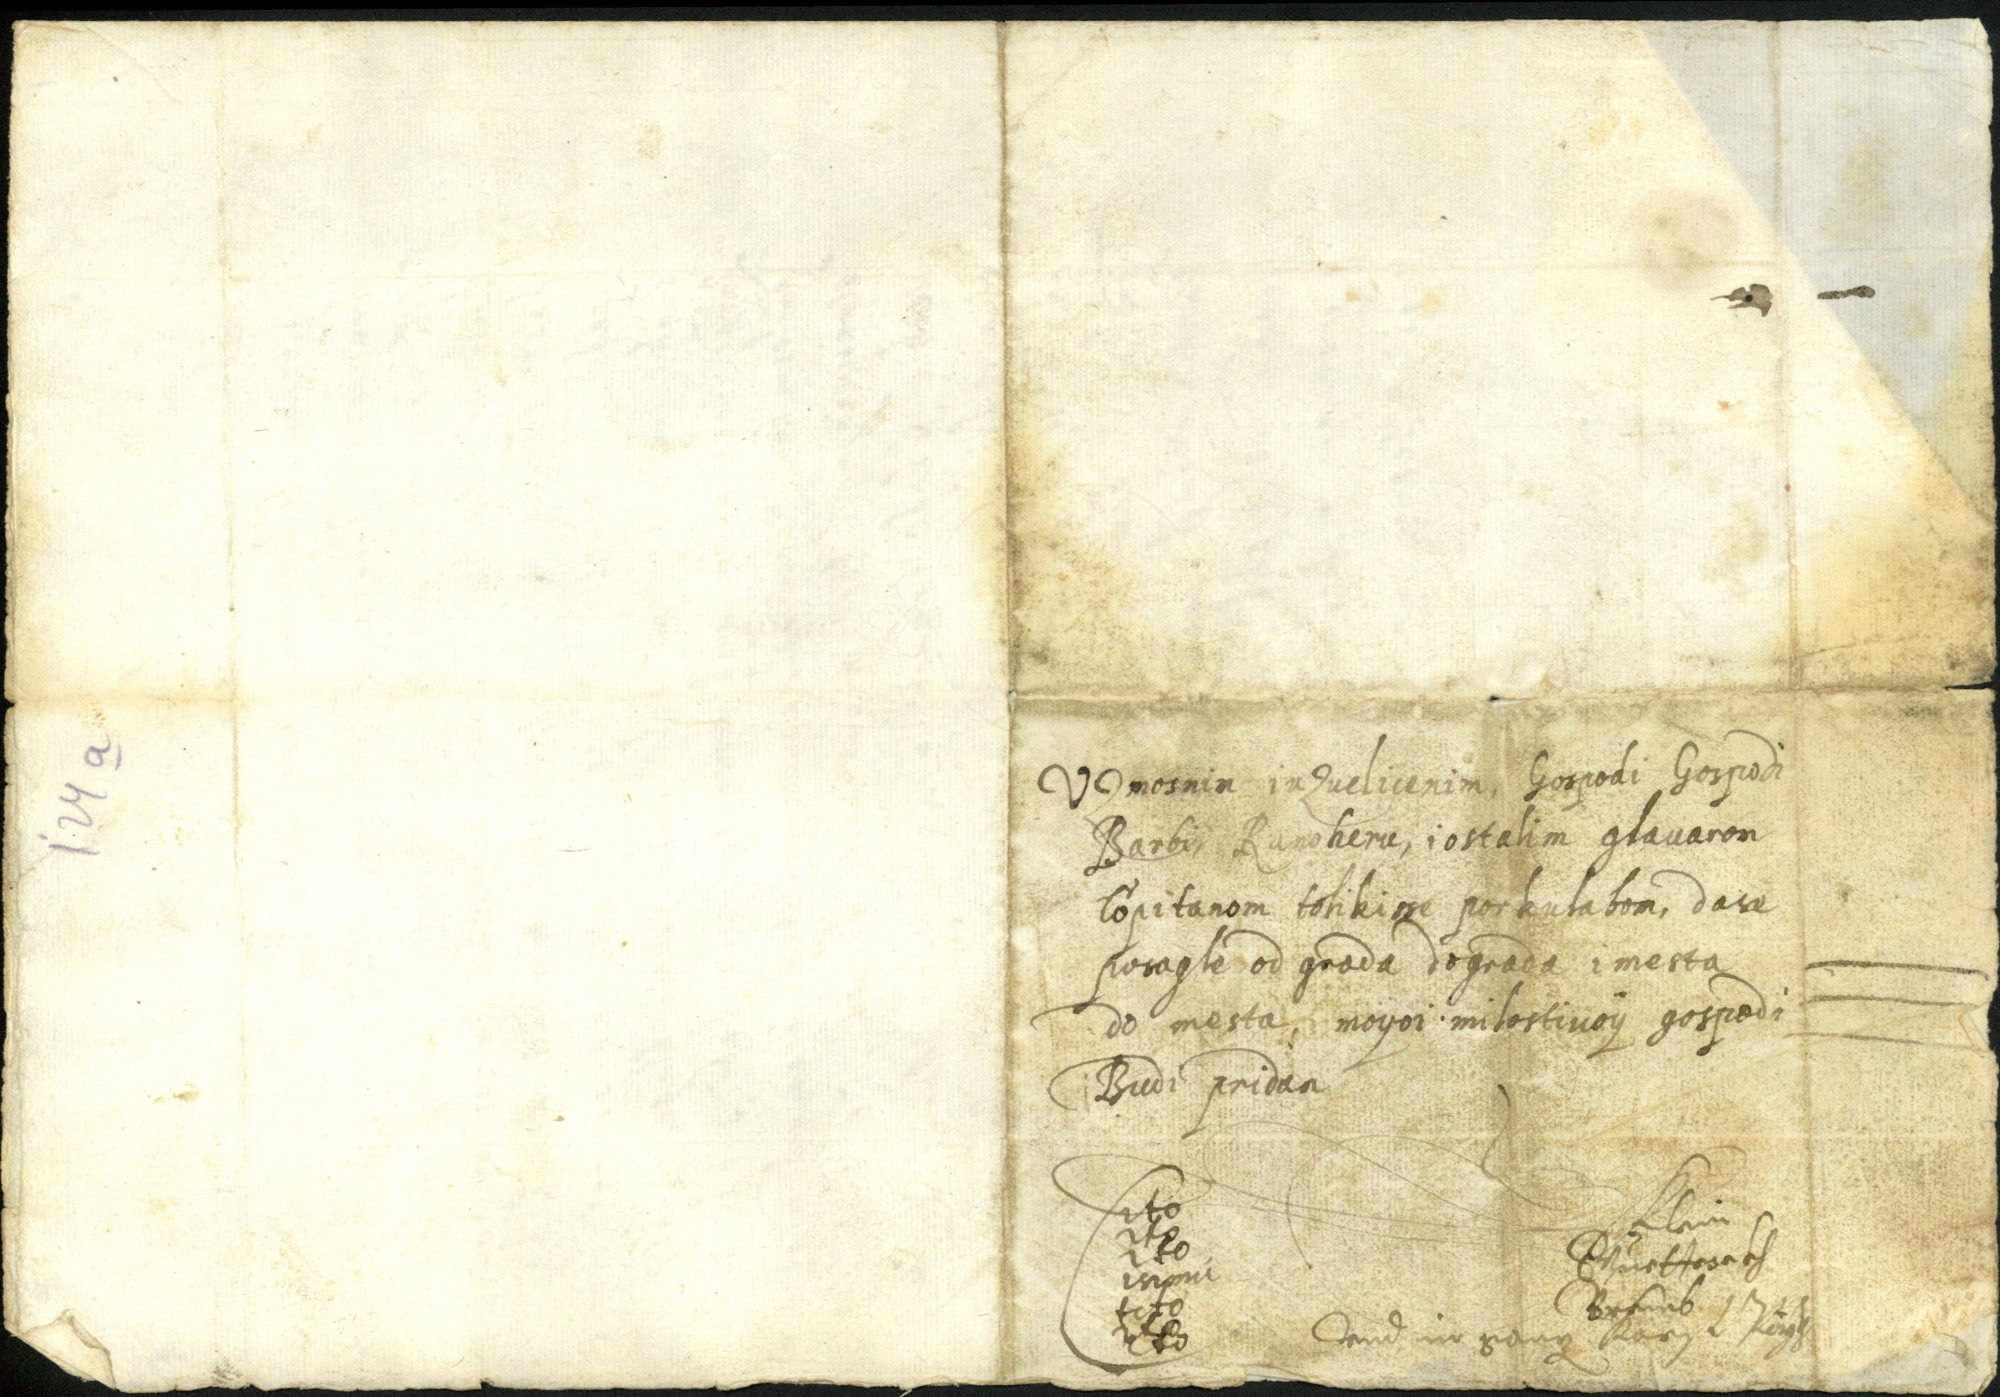 124 a
Vmosnim i uzuelicenim, Gospodi Gospodi
Barbi, Ranoheru, i ostalim glauarom
Copitanom tolikisse porkulabom, dase
posagle od grada dograda i mesta
do mesta, moyoi milostiuoÿ gospodi
Budi pridan
Cito
ito
ito
isimi
cito
cito
Klein